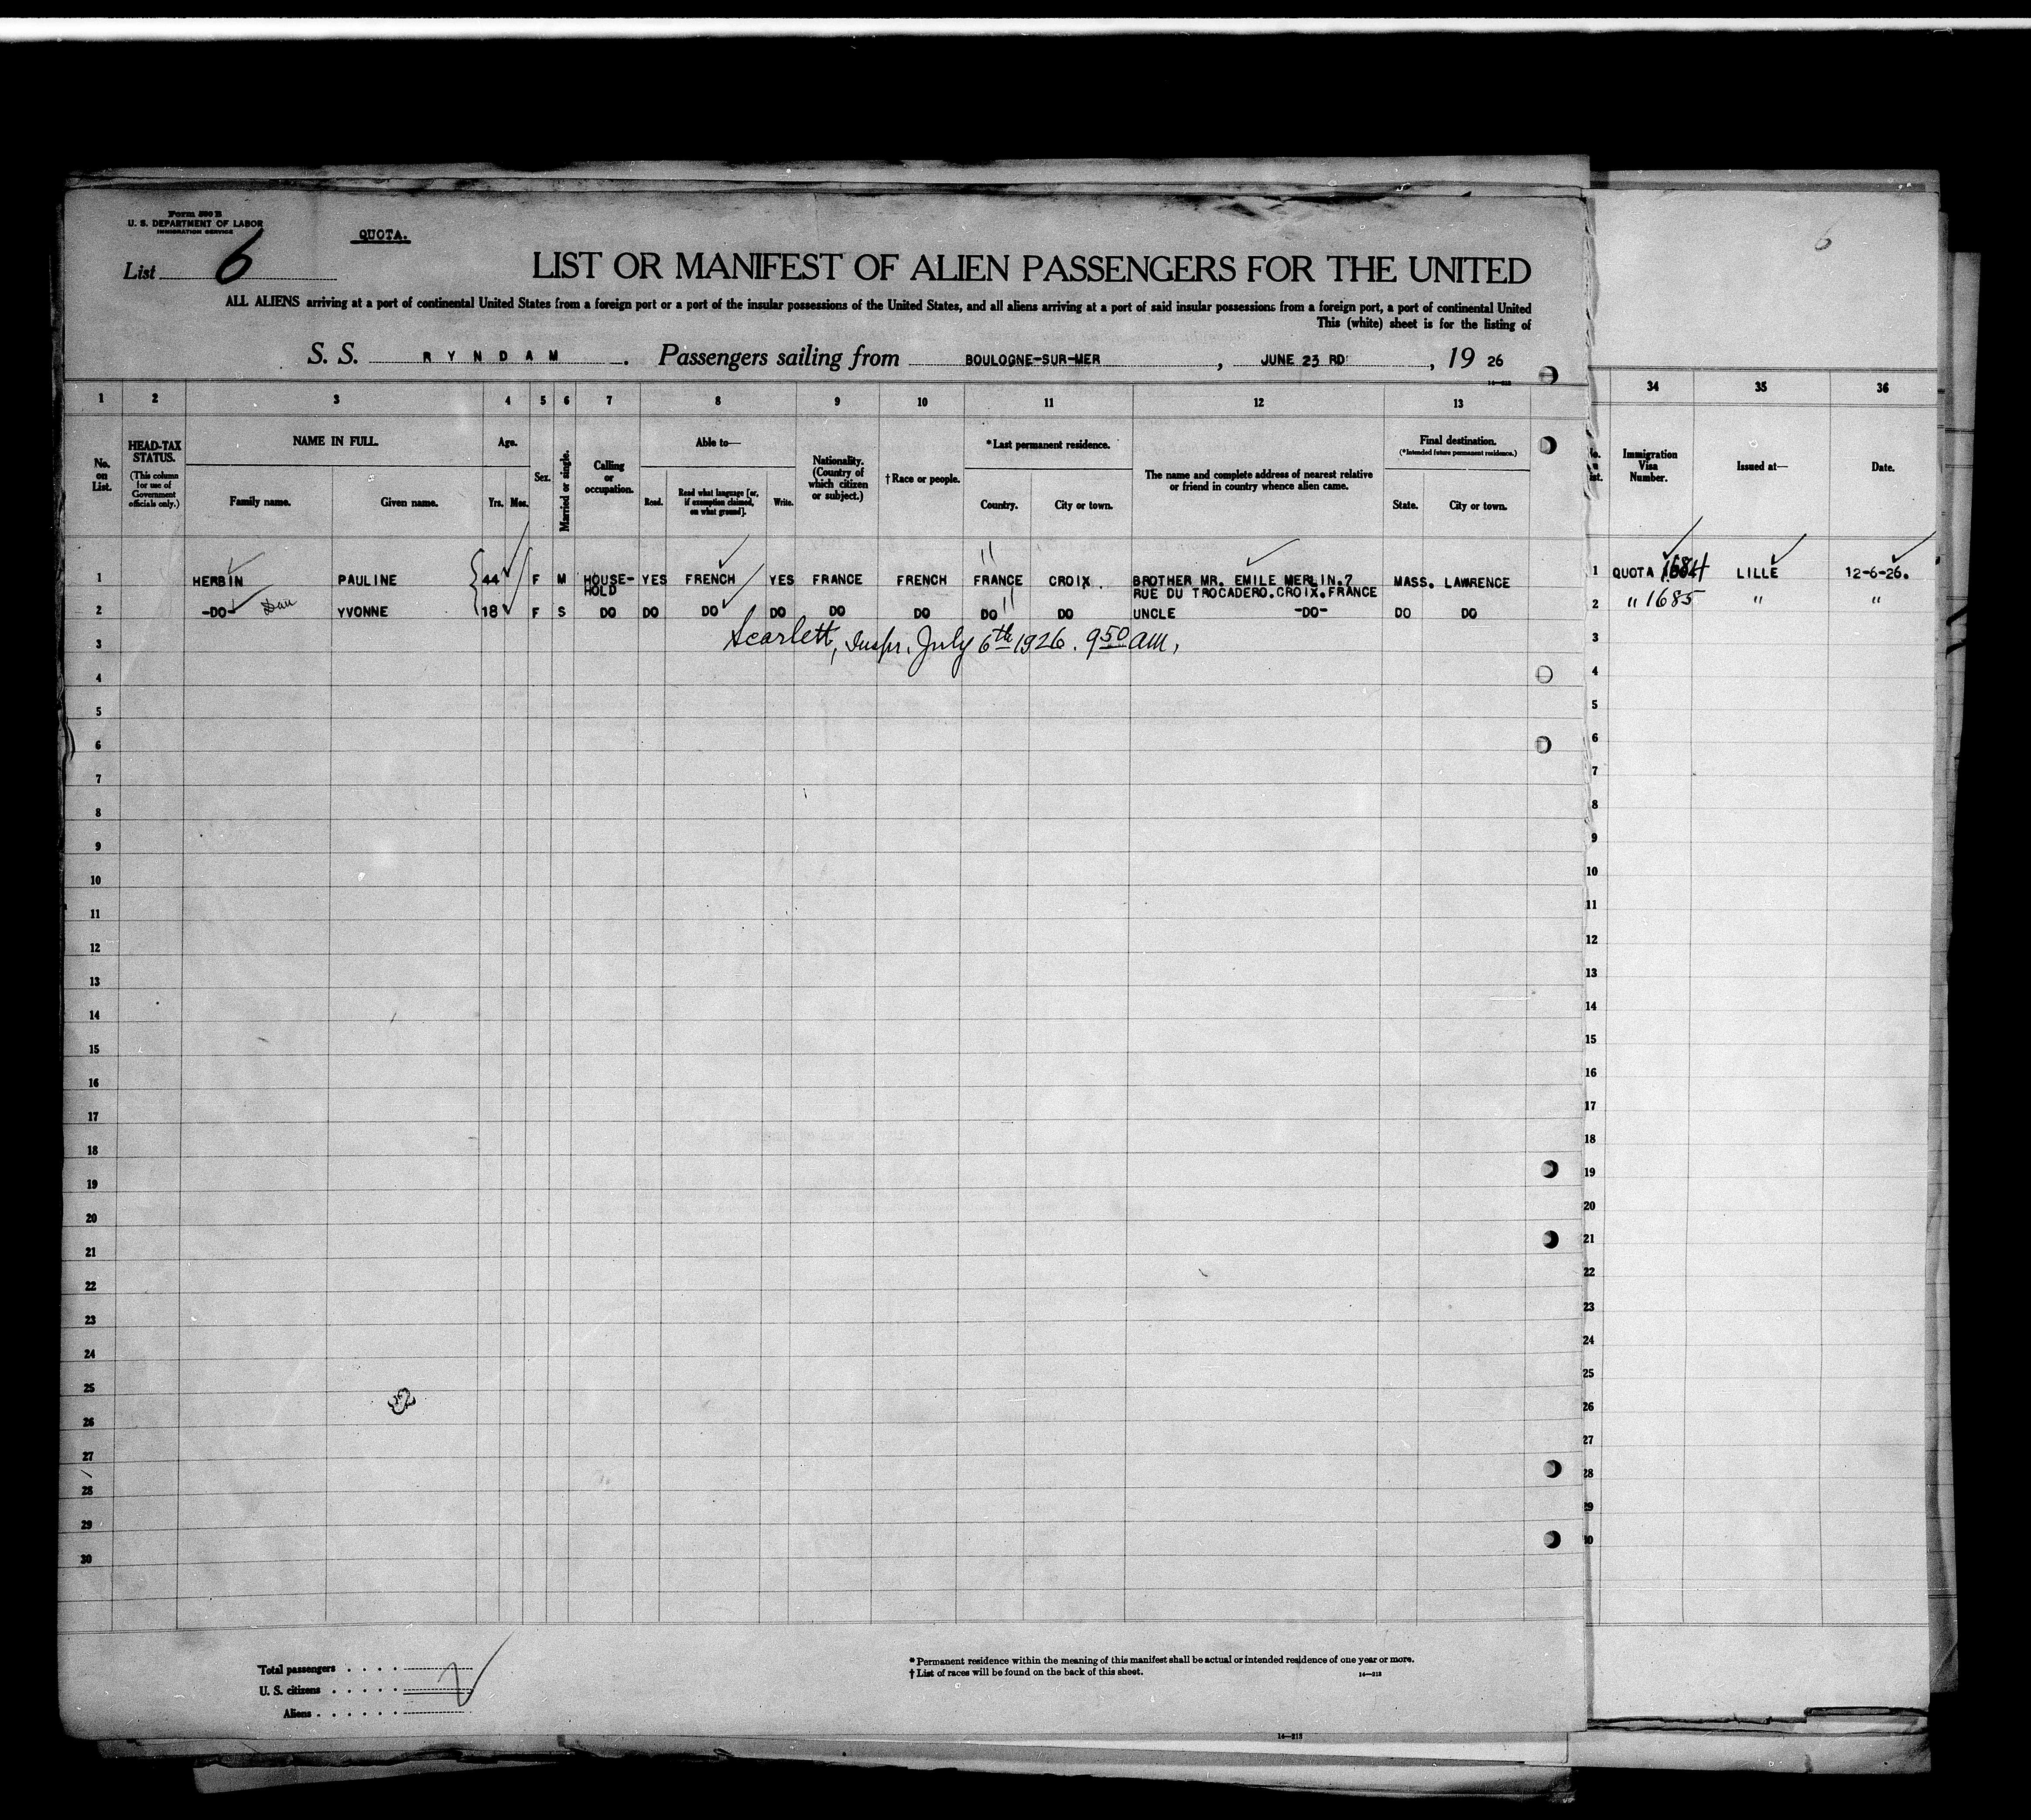 Form 500 B
U. S. DEPARTMENT OF LABOR
IMMIGRATION SERVICE
QUOTA.
List 6
6
LIST OR MANIFEST OF ALIEN PASSENGERS FOR THE UNITED
ALL ALIENS arriving at a port of continental United States from a foreign port or a port of the insular possessions of the United States, and all aliens arriving at a port of said insular possessions from a foreign port, a port of continental United
This (white) sheet is for the listing of
S. S. RYNDAM. Passengers sailing from BOULOGNE-SUR-MER, JUNE 23 RD, 19 26
14—213
1 2 3 4 5 6 7 8 9 10 11 12 13 34 35 36
No. on List.
HEAD-TAX STATUS.
(This column for use of Government officials only.)
NAME IN FULL.
Family name. Given name.
Age.
Yrs. Mos.
Sex.
Married or single.
Calling or occupation.
Able to—
Read. Read what language [or, if exemption claimed, on what ground]. Write.
Nationality. (Country of which citizen or subject.)
†Race or people.
*Last permanent residence.
Country. City or town.
The name and complete address of nearest relative or friend in country whence alien came.
Final destination.
(*Intended future permanent residence.)
State. City or town.
Immigration Visa Number.
Issued at—
Date.
1 HERBIN PAULINE 44 F M HOUSE-HOLD YES FRENCH YES FRANCE FRENCH FRANCE CROIX. BROTHER MR. EMILE MERLIN.7 RUE DU TROCADERO.CROIX.FRANCE MASS. LAWRENCE 1 QUOTA 1684 LILLE 12-6-26.
2 -DO- Dau YVONNE 18 F S DO DO DO DO DO DO DO DO UNCLE -DO- DO DO 2 " 1685 " "
3 Scarlett, Inspr. July 6th 1926. 9 50 am, 3
4 4
5 5
6 6
7 7
8 8
9 9
10 10
11 11
12 12
13 13
14 14
15 15
16 16
17 17
18 18
19 19
20 20
21 21
22 22
23 23
24 24
25 25
26 26
27 27
28 28
29 29
30 30
Total passengers
U. S. citizens
Aliens
*Permanent residence within the meaning of this manifest shall be actual or intended residence of one year or more.
†List of races will be found on the back of this sheet. 14—213
14—213